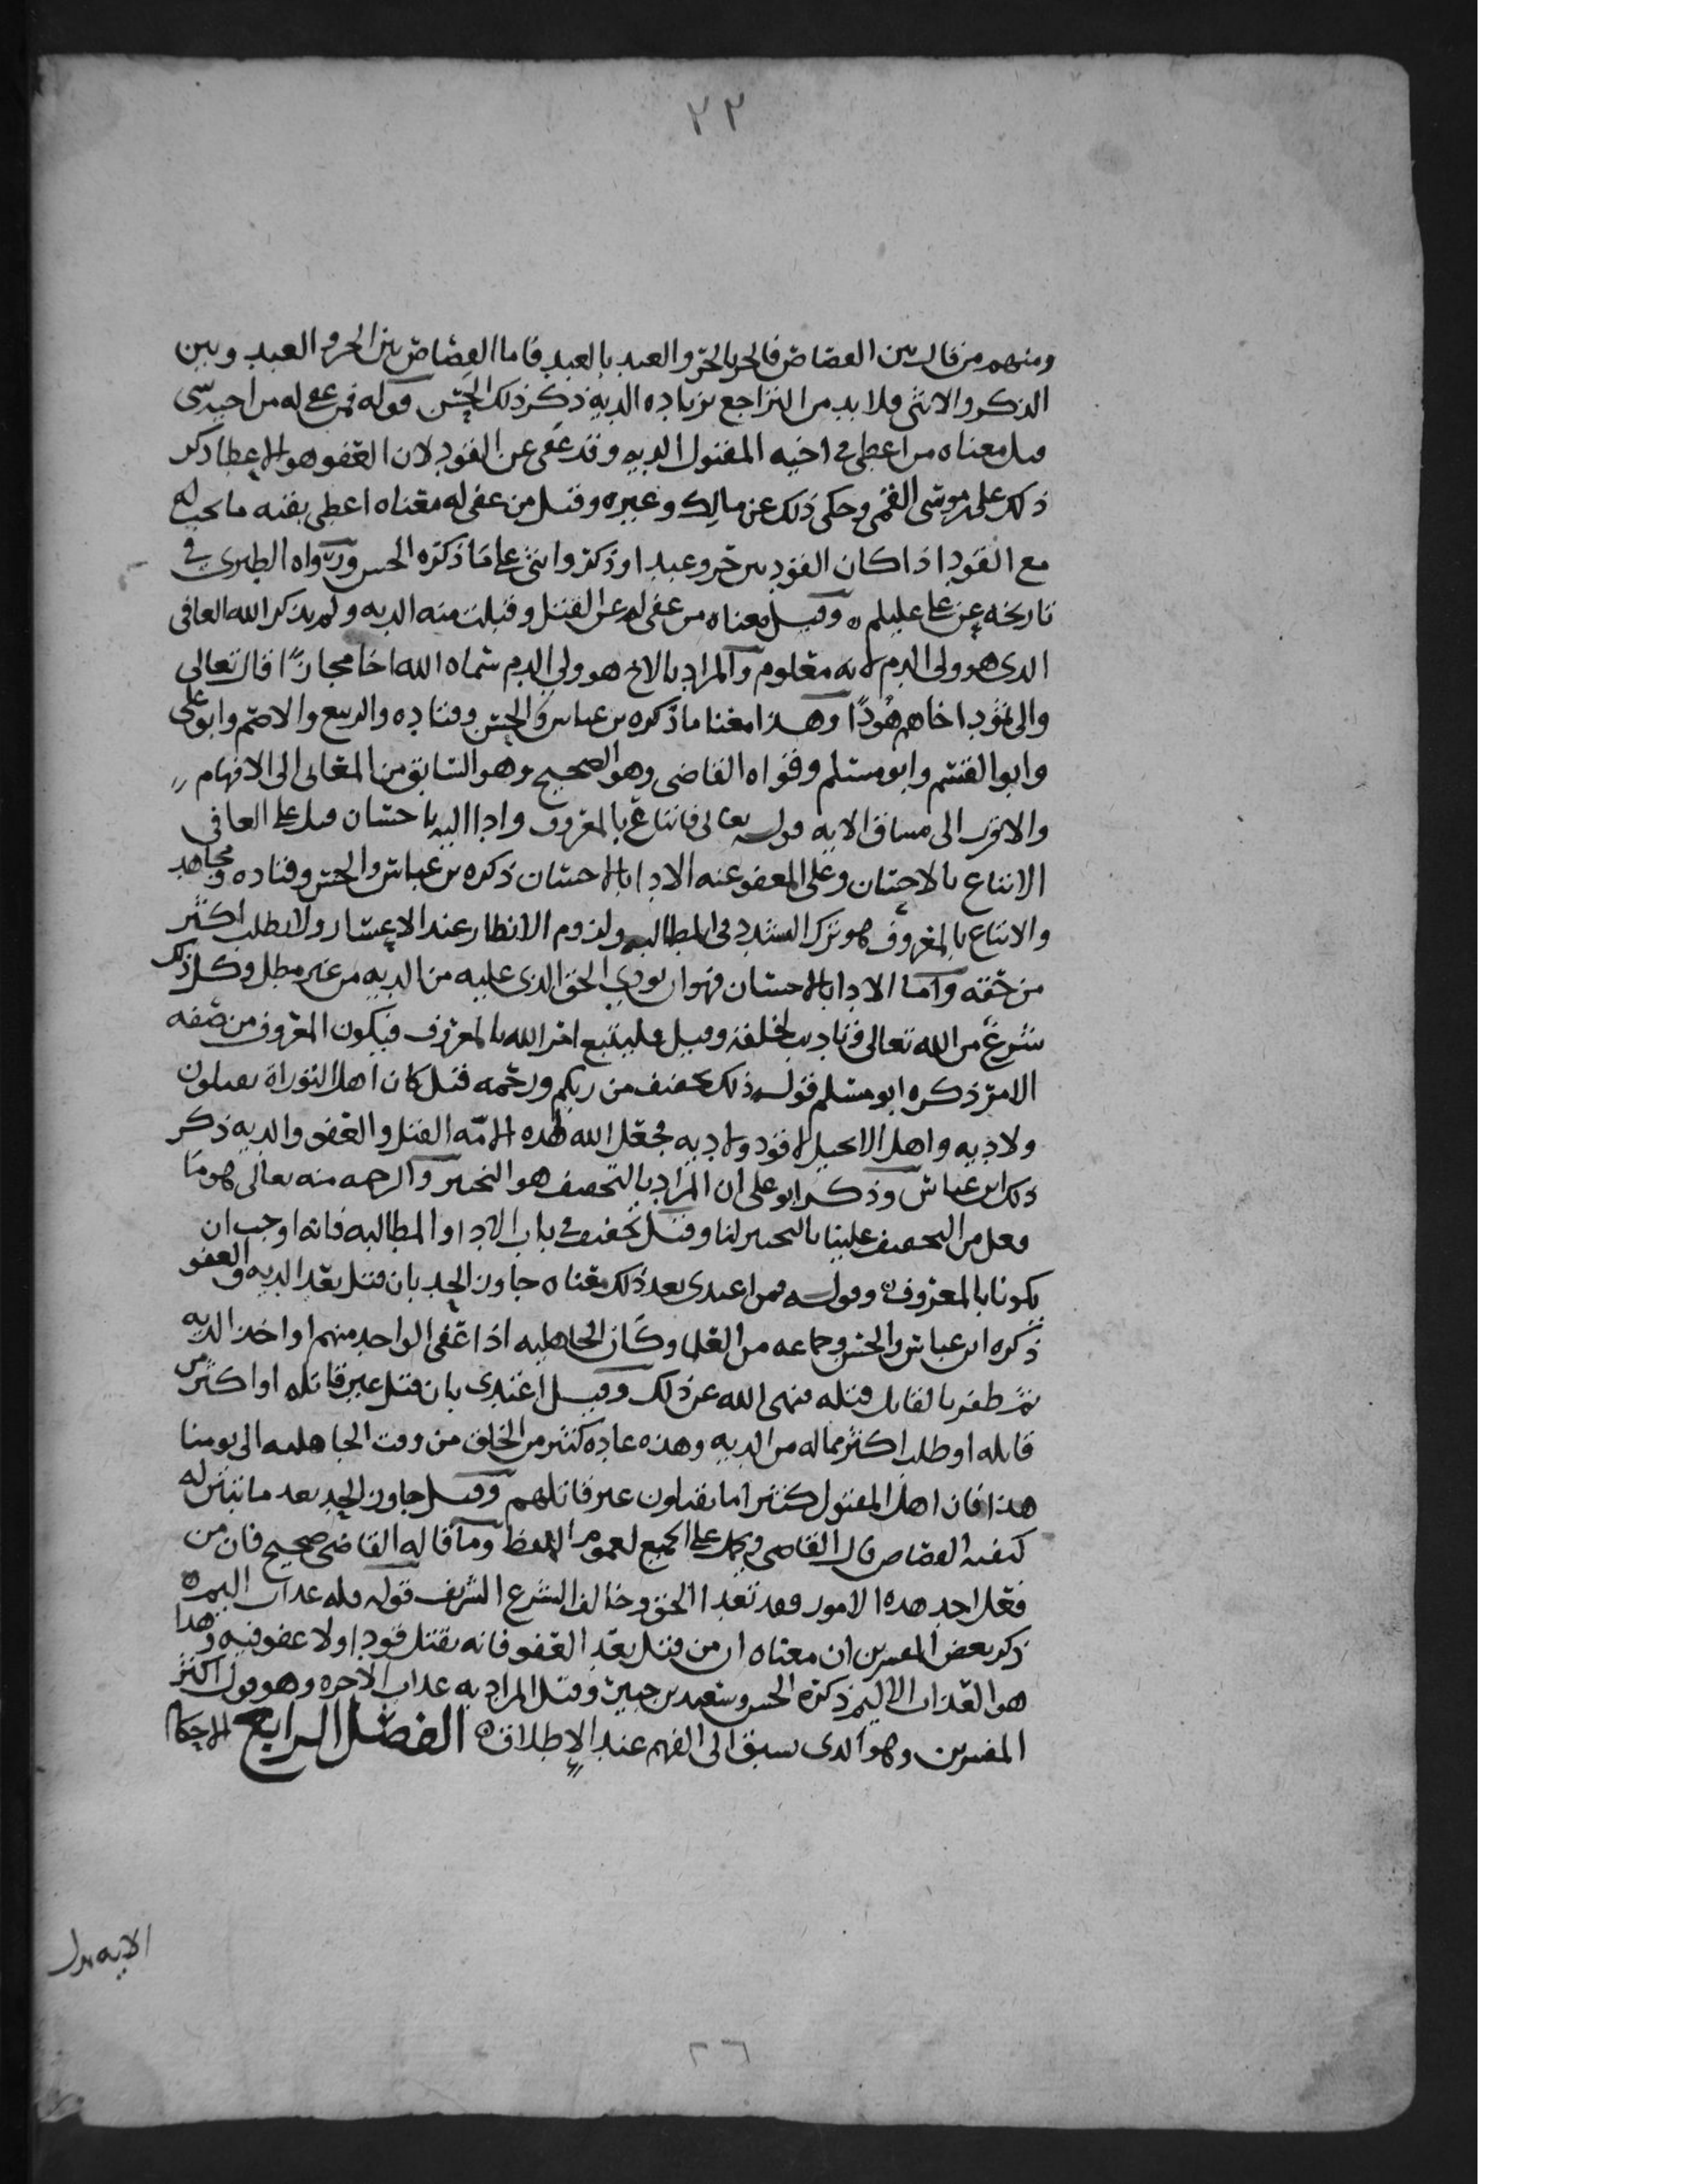 ٢٢
ومنهم من قال بين القصاص في الحر بالحر والعبد بالعبد فاما القصاص بين الحر و العبد وبين
الذكر والانثى فلا بد من التراجع بزياده الديه ذكر ذلك الحسن قوله فمن عفي له من اخيه شي
قيل معناه من اعطي في اخيه المقتول الديه وقد عفى عن القود لان العفو هو الاعطا ذكر
ذلك علي بن موسى القمي وحكى ذلك عن مالك وغيره وقيل من عفي له معناه اعطى بقيه ما يجب له
مع القود اذا كان القود بين حر وعبد او ذكر وانثى على ما ذكره الحسن ورواه الطبري في
تاريخه عن علي عليلم ه وقيل معناه من عفي له عن القتل وقبلت منه الديه ولم يذكر الله العافي
الذي هو ولي الدم لانه معلوم والمراد بالاخ هو ولي الدم سماه الله اخا مجازًا قال تعالى
والى ثمود اخاهم هودًا وهذا معنا ما ذكره بن عباس والحسن وقتاده والربيع والاصم وابو علي
وابو القسم وابو مسلم وقواه القاضي وهو الصحيح وهو السابق من المعاني الى الافهام
والاقرب الى مساق الايه قوله تعالى فاتباع بالمعروف وادا اليه باحسان قيل على العافي
الاتباع بالاحسان وعلى المعفو عنه الادا بالاحسان ذكره بن عباس والحسن وقتاده ومجاهد
والاتباع بالمعروف هو ترك التشدد في المطالبه ولزوم الانظار عند الاعسار ولا يطلب اكثر
من حقه واما الادا بالاحسان فهو ان يودي الحق الذي عليه من الديه من غير مطل وكل ذلك
شرع من الله تعالى وتاديب لخلقه وقيل فليتبع امر الله بالمعروف فيكون المعروف من صفه
الامر ذكره ابو مسلم قوله ذلك تخفيف من ربكم ورحمه قيل كان اهل التوراة يقتلون
ولا ديه واهل الانجيل لا قود ولا ديه فجعل الله لهذه الامه القتل والعفو والديه ذكر
ذلك ابن عباس وذكر ابو علي ان المراد بالتخفيف هو التخيير والرحمه منه تعالى هو ما
فعل من التخفيف علينا بالتخيير لنا وقيل تخفيف في باب الادا والمطالبه فانه اوجب ان
يكونا بالمعروف ه وقوله فمن اعتدى بعد ذلك معناه جاوز الحد بان قتل بعد الديه والعفو
ذكره ابن عباس والحسن وجماعه من العلما وكان الجاهليه اذا عفى الواحد منهم او اخذ الديه
ثم ظفر بالقاتل قتله فنهى الله عن ذلك وقيل اعتدى بان قتل غير قاتله او اكثر من
قاتله او طلب اكثر مما له من الديه وهذه عاده كثير من الخلق من وقت الجاهليه الى يومنا
هذا فان اهل المقتول كثير اما يقتلون غير قاتلهم وقيل جاوز الحد بعد ما تبين له
كيفيه القصاص قال القاضي ويحمل على الجميع لعموم اللفظ وما قاله القاضي صحيح فان من
فعل احد هذه الامور فقد تعدا الحق وخالف الشرع الشريف قوله فله عذاب اليم ه
ذكر بعض المفسرين ان معناه ان من قتل بعد العفو فانه يقتل قودا ولا عفو فيه وهذا
هو العذاب الاليم ذكره الحسن وسعيد بن جبير وقيل المراد به عذاب الاخره وهو قول اكثر
المفسرين وهو الذي يسبق الى الفهم عند الاطلاق ه الفصل الرابع الاحكام
الايه تدل
٢٦